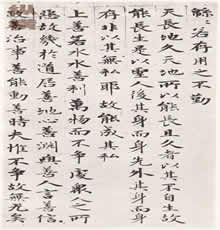 若存用之不勤
天長地久天地所以能長且久者以其不自生故
能長生是以聖人後其身而身先外其身而身
存非以其無私耶故能成其私
上善若水善利萬物而不爭處衆人之所
惡故幾於道居善地心善淵與善人言善信
政善治事善能動善時夫惟不爭故無尤矣